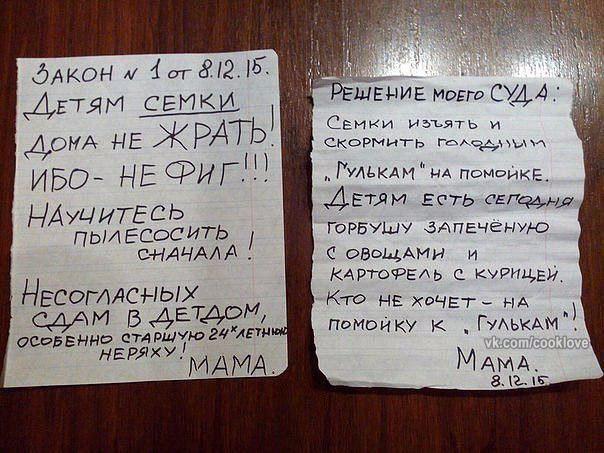 ЗАКОН N 1 от 8.12.15.
ДЕТЯМ СЕМКИ
ДОМА НЕ ЖРАТЬ!
ИБО - НЕ ФИГ!!!
НАУЧИТЕСЬ
ПЫЛЕСОСИТЬ
СНАЧАЛА!
НЕСОГЛАСНЫХ
СДАМ В ДЕТДОМ,
ОСОБЕННО СТАРШУЮ 24х ЛЕТНЮЮ
НЕРЯХУ!
МАМА.
РЕШЕНИЕ МОЕГО СУДА:
СЕМКИ ИЗЪЯТЬ И
СКОРМИТЬ ГОЛОДНЫМ
„ГУЛЬКАМ" НА ПОМОЙКЕ.
ДЕТЯМ ЕСТЬ СЕГОДНЯ
ГОРБУШУ ЗАПЕЧЁНУЮ
С ОВОЩАМИ И
КАРТОФЕЛЬ С КУРИЦЕЙ.
КТО НЕ ХОЧЕТ - НА
ПОМОЙКУ К „ГУЛЬКАМ"!
vk.com/cooklove
МАМА.
8.12.15.